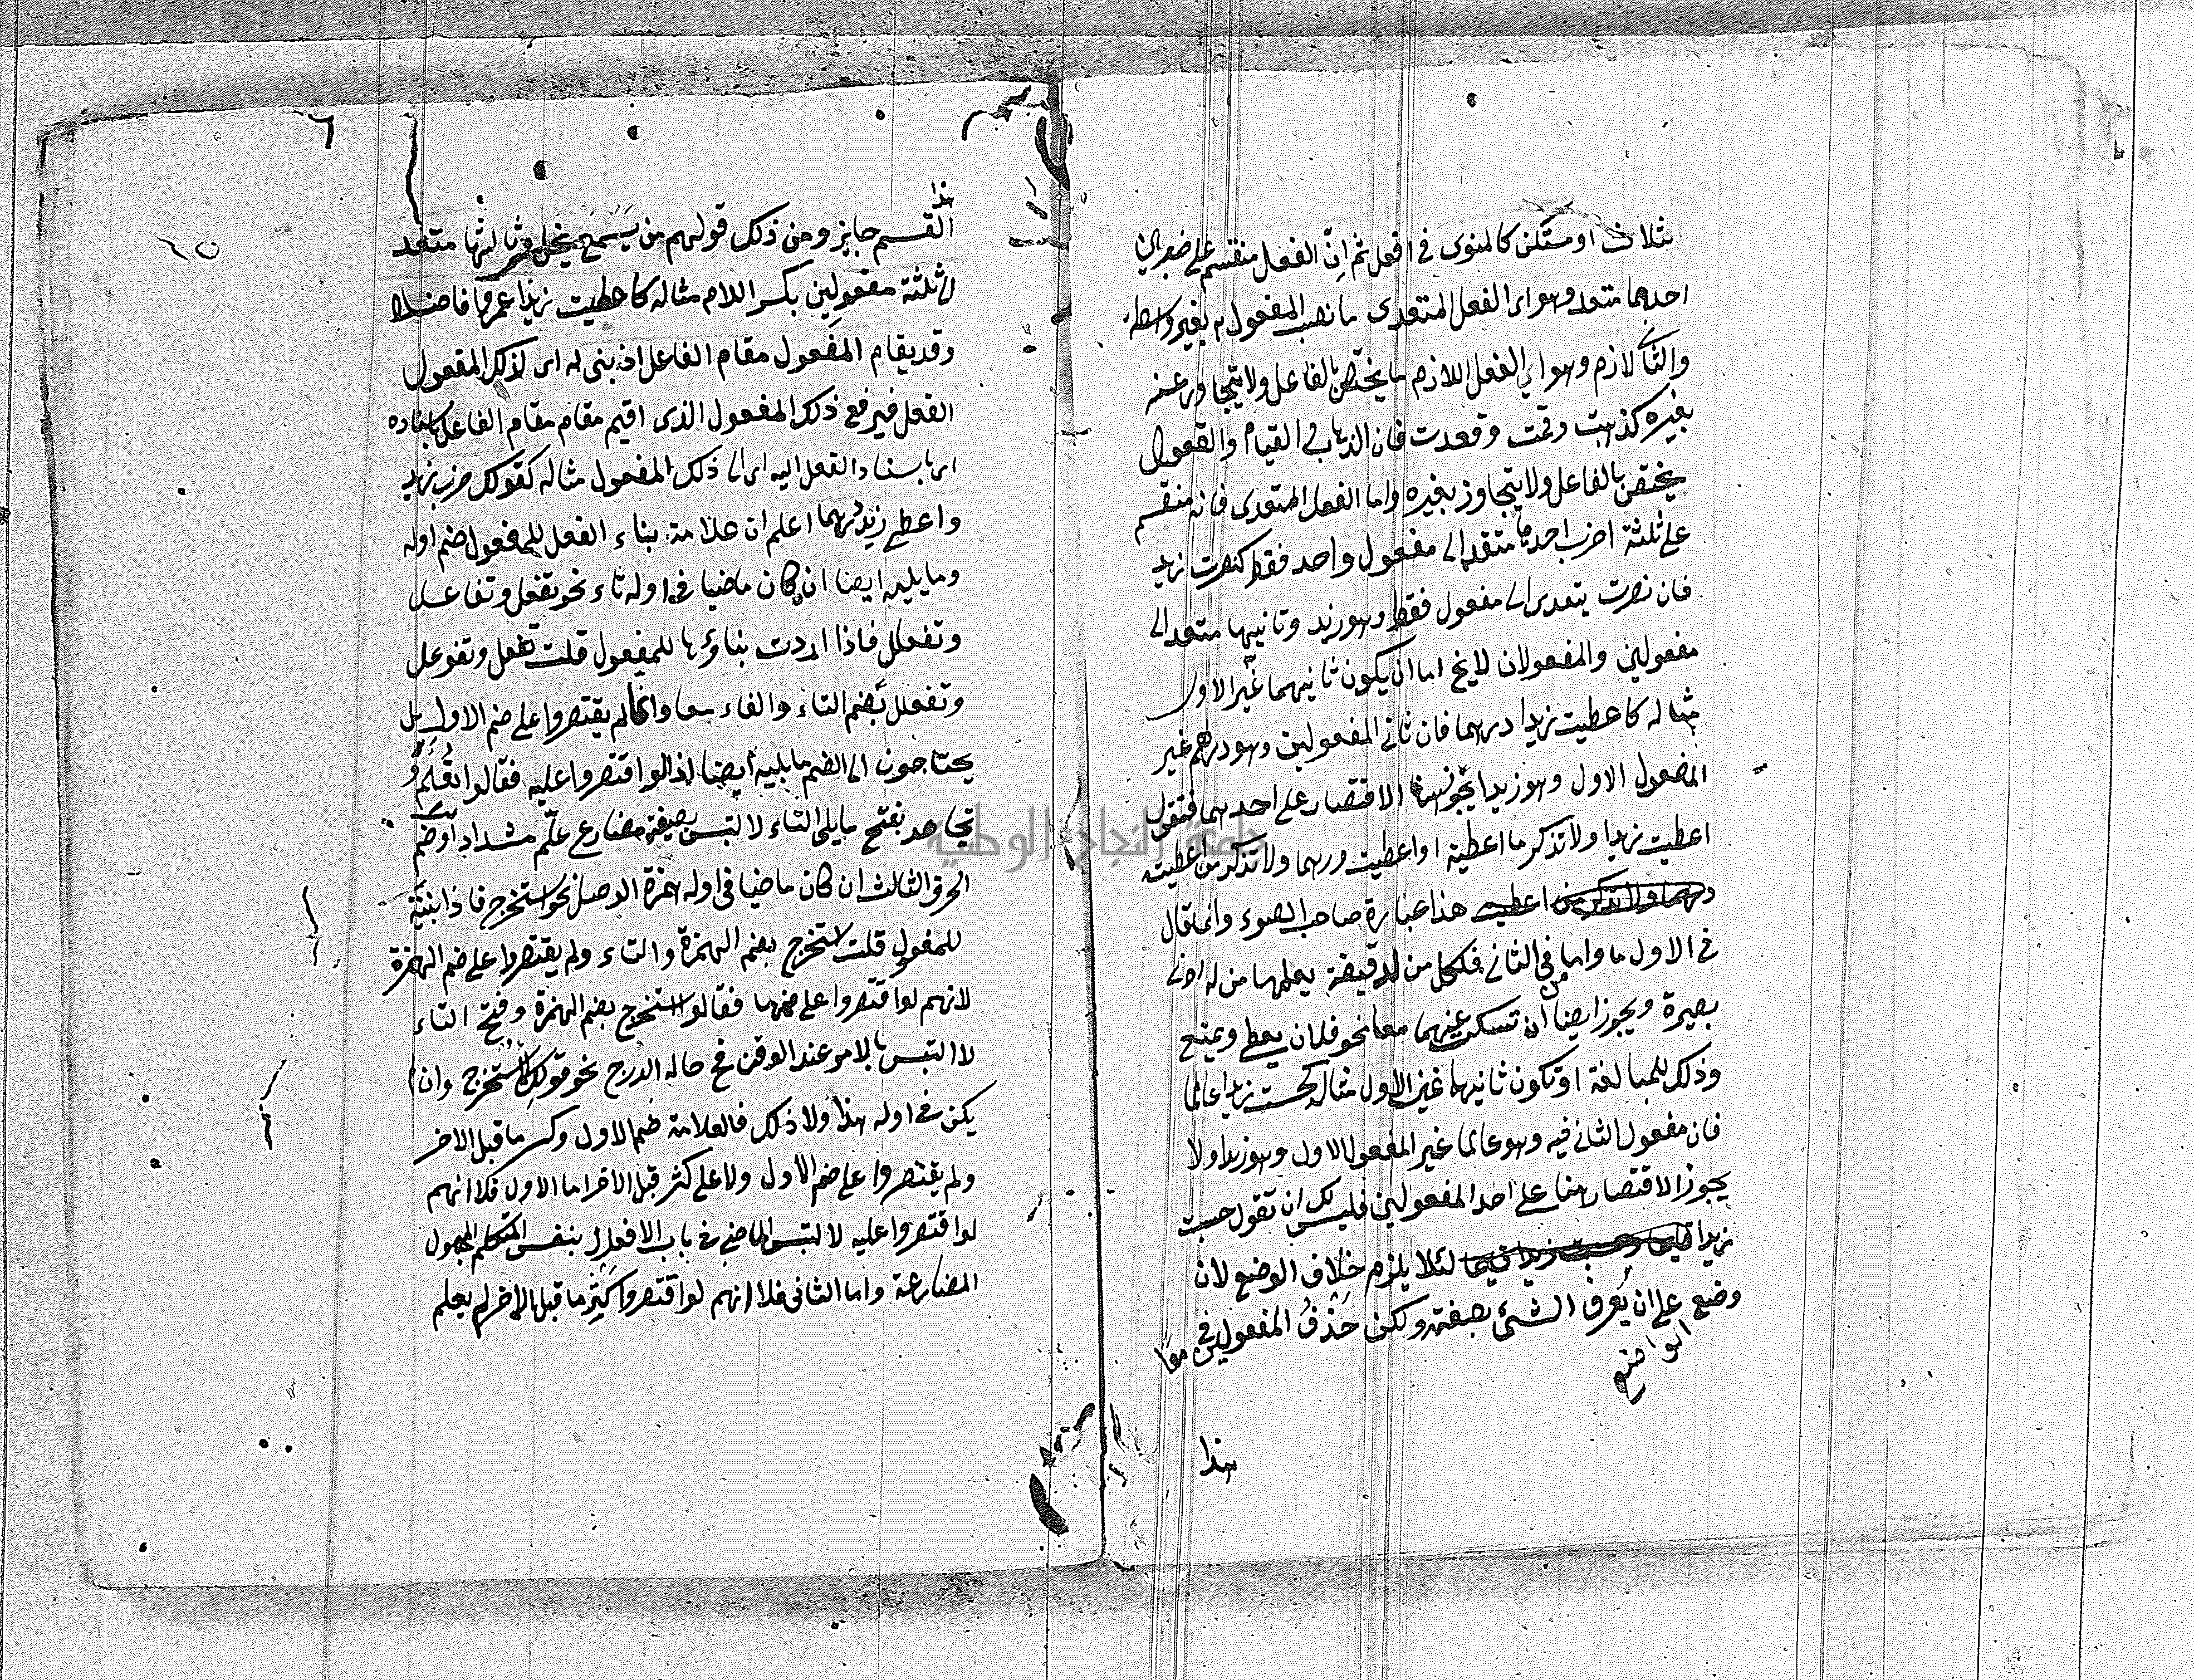 ثلاث او مستكن كالمنوى فى افعل ثم انّ الفعل منقسم على ضربين
احدهما متعد وهو اى الفعل المتعدى ما نصب المفعول به بغير واسطة
والثانى لازم وهو اى الفعل اللازم ما يختص بالفاعل ولا يتجاوز عنه
بغيره كذهبت وقمت وقعدت فان الذهاب والقيام والقعود
يختص بالفاعل ولا يتجاوز بغيره واما الفعل المتعدى فانه منقسم
على ثلثة اضرب احدها متعد الى مفعول واحد فقط كنصرت زيد
فان نصرت يتعدى الى مفعول فقط وهو زيد وثانيها متعد الى
مفعولين والمفعولان لا يخ اما ان يكون ثانيهما غير الاول
مثاله كاعطيت زيدا درهما فان ثانى المفعولين وهو درهم غير
المفعول الاول وهو زيدا يجوز هنا الاقتصار على احدهما فتقول
اعطيت زيدا ولا تذكر ما اعطيته او اعطيت درهما ولا تذكر من اعطيته
درهما ولا تذكر من اعطيت هذا عبارة صاحب الضوء وانما قال
فى الاول ما واما فى الثانى فكحل من لدقيقة يعلمها من له ادنى
بصيرة ويجوز ايضا ان تسكت عنهما معا نحو فلان يعطى ويمنع
وذلك للمبالغة او تكون ثانيهما غير الاول مثاله كحسبت زيدا عالما
فان مفعول الثانى فيه وهو عالما غير المفعول الاول وهو زيدا ولا
يجوز الاقتصار هنا على احد المفعولين فليس لك ان تقول حسبت
زيدا لئلا يلزم خلاف الوضع لان
وضع على ان يُعرف الشىء بصفته ولكن حذف المفعولين معًا
الواضع
هذا
جامعة النجاح الوطنية
١٥
هذا
القسم جايز ومن ذلك قولهم من يَسْمَع يخل وثالثها متعد
الى ثلثة مفعولين بكسر اللام مثاله كاعطيت زيدا عمروا فاضلا
وقد يقام المفعول مقام الفاعل اذ بنى له اى لذلك المفعول
الفعل فيرفع ذلك المفعول الذى اقيم مقام مقام الفاعل باسناده
اى باسناد الفعل اليه اى الى ذلك المفعول مثاله كقولك ضرب زيد
واعطى زيد درهما اعلم ان علامة بناء الفعل للمفعول ضم اوله
وما يليه ايضا ان كان ماضيا فى اوله تاء نحو تفعل وتفاعل
وتفعلل فاذا اردت بناؤها للمفعول قلت تفعل وتفوعل
وتفعلل بضم التاء والفاء معا وانما لم يقتصروا على ضم الاول بل
يحتاجون الى الضم ما يليه ايضا اذ لو اقتصروا عليه فقالوا تُعَلِّم و
تجاهد بفتح ما يلى التاء لالتبس بصيغة مضارع علّم مشدادا وضم
الحرف الثالث ان كان ماضيا فى اوله همزة الوصل نحو استخرج فاذا بنيته
للمفعول قلت استخرج بضم الهمزة والتاء ولم يقتصروا على ضم الهمزة
لانهم لو اقتصروا على ضمها فقالوا استخرج بضم الهمزة وفتح التاء
لالتبس بالامر عند الوقف فى حاله الدرج نحو قولك استخرج وان لم
يكن فى اوله هذا ولا ذلك فالعلامة ضم الاول وكسر ما قبل الاخر
ولم يقتصروا على ضم الاول ولا على كسر قبل الاخر اما الاول فلانهم
لو اقتصروا عليه لالتبس الماضى فى باب الافعال بنفس المتكلم المجهول
المضارعة واما الثانى فلانهم لو اقتصروا كسر ما قبل الاخر لم يعلم